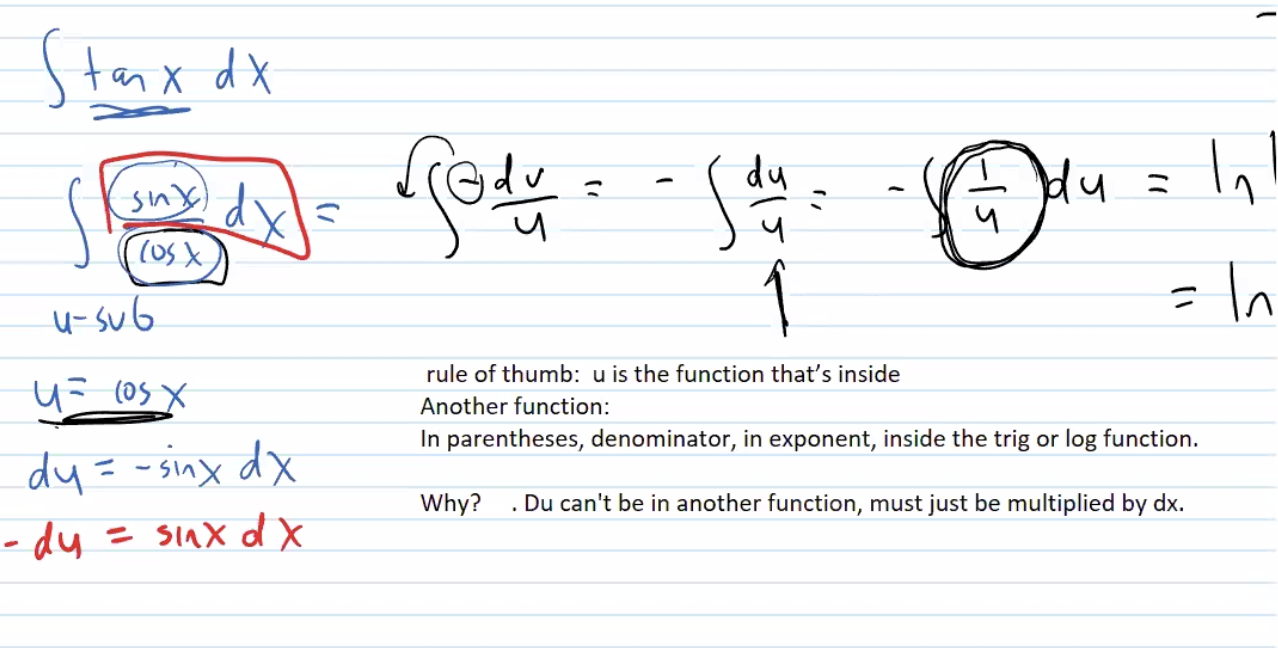 ∫ tan x dx
∫ sin x / cos x dx = ∫ - du / u = - ∫ du / u = - ∫ 1 / u du = ln
= ln
u-sub
u = cos x
du = - sin x dx
- du = sin x dx
rule of thumb: u is the function that's inside
Another function:
In parentheses, denominator, in exponent, inside the trig or log function.
Why? . Du can't be in another function, must just be multiplied by dx.